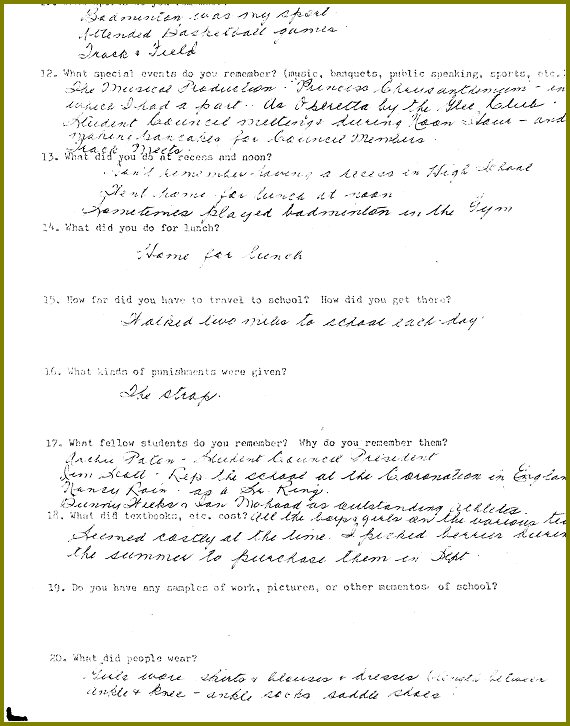 Badminton was my sport
Attended Basketball games
Track & Field
12. What special events do you remember? (music, banquets, public speaking, sports, etc.)
The Musical Production - Princess Chrysanthemum - in
which I had a part. An Operetta by the Glee Club.
Student Council meetings during Noon Hour - and
making pancakes for Council Members.
Track Meets.
13. What did you do at recess and noon?
Can't remember having a recess in High School
Went home for lunch at noon
Sometimes played badminton in the Gym
14. What did you do for lunch?
Home for lunch
15. How far did you have to travel to school? How did you get there?
Walked two miles to school each day.
16. What kinds of punishments were given?
The strap.
17. What fellow students do you remember? Why do you remember them?
Archie Paton - Student Council President
Jim Scott - Rep the school at the Coronation in Englan
Nancy Rain - as a
Bunny Hicks & Ian as outstanding Athletes.
18. What did textbooks, etc. cost? All the boys & girls on the various te
Seemed costly at the time. I picked berries during
the summer to purchase them in Sept.
19. Do you have any samples of work, pictures, or other mementos of school?
20. What did people wear?
Girls wore skirts & blouses & dresses between
ankle & knee - ankle socks saddle shoes.